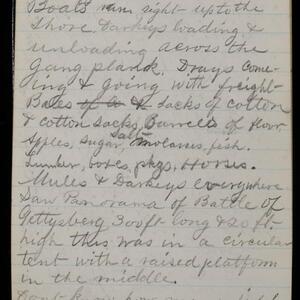 Boats run right up to the
Shore. Darkeys loading &
unloading across the
Gang plank. Drays Come-
ing & Going with freight-
Bales of Sacks of cotton
& cotton Sacks, Barrels of flour
Apples, Sugar, Salt molasses, fish.
Lumber, boxes, pkgs, Horses.
Mules & Darkeys everywhere
Saw Panorama of Battle of
Gettysberg 300 ft long & 20 ft.
high this was in a circular
tent with a raised platform
in the middle.